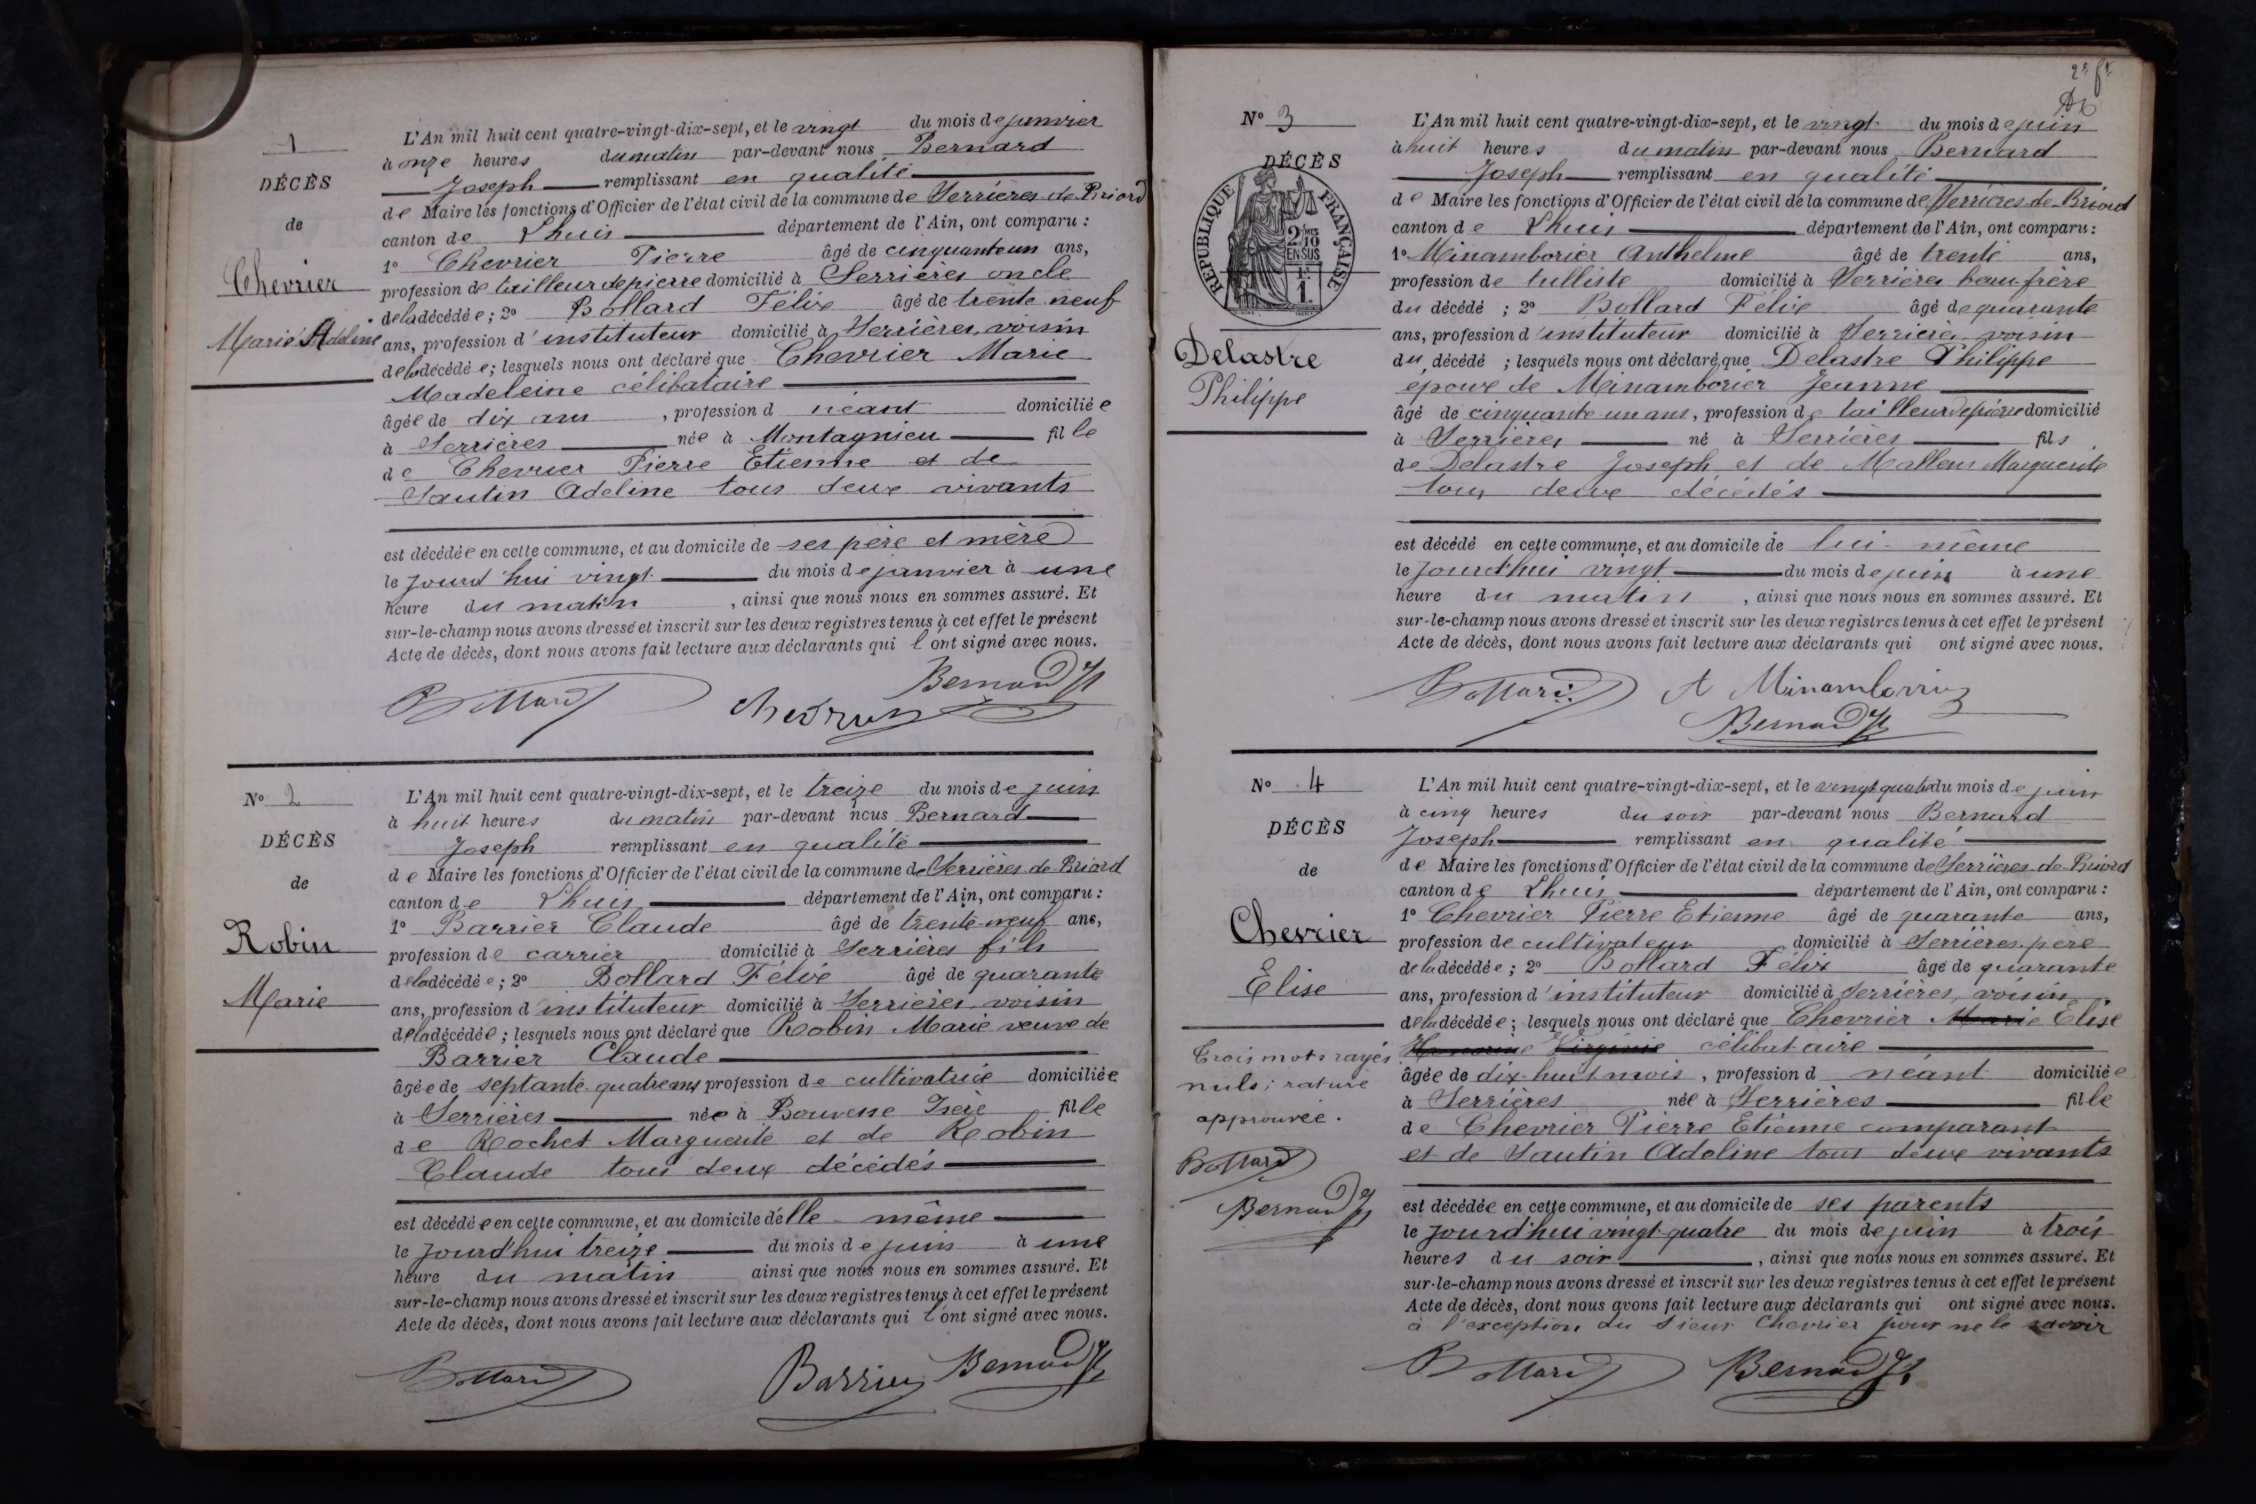 1
DÉCÈS
de
Chevrier
Marie Adeline
L'An mil huit cent quatre-vingt-dix-sept, et le vingt du mois de janvier
à onze heures du matin par-devant nous Bernard
Joseph remplissant en qualité
de Maire les fonctions d'Officier de l'état civil de la commune de Serrières de Briord
canton de Lhuis département de l'Ain, ont comparu :
1° Chevrier Pierre âgé de cinquante un ans,
profession de tailleur de pierre domicilié à Serrières oncle
de la décédée ; 2° Bollard Félix âgé de trente neuf
ans, profession d'instituteur domicilié à Serrières, voisin
de la décédée ; lesquels nous ont déclaré que Chevrier Marie
Madeleine célibataire
âgée de dix ans , profession d néant domiciliée
à Serrières née à Montagnieu fille
de Chevrier Pierre Etienne et de
Sautin Adeline tous deux vivants
est décédée en cette commune, et au domicile de ses père et mère
le jourd'hui vingt du mois de janvier à une
heure du matin , ainsi que nous nous en sommes assuré. Et
sur-le-champ nous avons dressé et inscrit sur les deux registres tenus à cet effet le présent
Acte de décès, dont nous avons fait lecture aux déclarants qui l'ont signé avec nous.
Bernard Jh
Bollard Chevrier
N° 2
DÉCÈS
de
Robin
Marie
L'An mil huit cent quatre-vingt-dix-sept, et le treize du mois de juin
à huit heures du matin par-devant nous Bernard
Joseph remplissant en qualité
de Maire les fonctions d'Officier de l'état civil de la commune de Serrières de Briord
canton de Lhuis département de l'Ain, ont comparu :
1° Barrier Claude âgé de trente-neuf ans,
profession de carrier domicilié à Serrières fils
de la décédée ; 2° Bollard Félix âgé de quarante
ans, profession d'instituteur domicilié à Serrières, voisin
de la décédée ; lesquels nous ont déclaré que Robin Marie veuve de
Barrier Claude
âgée de septante quatre ans profession de cultivatrice domiciliée
à Serrières née à Bouvesse Isère fille
de Rochet Marguerite et de Robin
Claude tous deux décédés
est décédée en cette commune, et au domicile d'elle-même
le jourd'hui treize du mois de juin à une
heure du matin ainsi que nous nous en sommes assuré. Et
sur-le-champ nous avons dressé et inscrit sur les deux registres tenus à cet effet le présent
Acte de décès, dont nous avons fait lecture aux déclarants qui l'ont signé avec nous.
Bollard Barrier Bernard Jh
N° 3
DÉCÈS
RÉPUBLIQUE FRANÇAISE
2/10
EN SUS
Delastre
Philippe
L'An mil huit cent quatre-vingt-dix-sept, et le vingt du mois de juin
à huit heures du matin par-devant nous Bernard
Joseph remplissant en qualité
de Maire les fonctions d'Officier de l'état civil de la commune de Serrières de Briord
canton de Lhuis département de l'Ain, ont comparu :
1° Minamborier Anthelme âgé de trente ans,
profession de tulliste domicilié à Serrières beau-frère
du décédé ; 2° Bollard Félix âgé de quarante
ans, profession d'instituteur domicilié à Serrières, voisin
du décédé ; lesquels nous ont déclaré que Delastre Philippe
époux de Minamborier Jeanne
âgé de cinquante un ans, profession de tailleur de pierre domicilié
à Serrières né à Serrières fils
de Delastre Joseph et de Marguerite
tous deux décédés
est décédé en cette commune, et au domicile de lui-même
le jourd'hui vingt du mois de juin à une
heure du matin , ainsi que nous nous en sommes assuré. Et
sur-le-champ nous avons dressé et inscrit sur les deux registres tenus à cet effet le présent
Acte de décès, dont nous avons fait lecture aux déclarants qui ont signé avec nous.
Bollard A Minamborier
Bernard Jh
N° 4
DÉCÈS
de
Chevrier
Élise
Trois mots rayés
nuls ; rature
approuvée.
Bollard
Bernard Jh
L'An mil huit cent quatre-vingt-dix-sept, et le vingt quatre du mois de juin
à cinq heures du soir par-devant nous Bernard
Joseph remplissant en qualité
de Maire les fonctions d'Officier de l'état civil de la commune de Serrières de Briord
canton de Lhuis département de l'Ain, ont comparu :
1° Chevrier Pierre Etienne âgé de quarante ans,
profession de cultivateur domicilié à Serrières, père
de la décédée ; 2° Bollard Félix âgé de quarante
ans, profession d'instituteur domicilié à Serrières, voisin
de la décédée ; lesquels nous ont déclaré que Chevrier Marie Elise
Virginie célibataire
âgée de dix-huit mois , profession d néant domiciliée
à Serrières née à Serrières fille
de Chevrier Pierre Etienne comparant
et de Sautin Adeline tous deux vivants
est décédée en cette commune, et au domicile de ses parents
le jourd'hui vingt-quatre du mois de juin à trois
heures du soir , ainsi que nous nous en sommes assuré. Et
sur-le-champ nous avons dressé et inscrit sur les deux registres tenus à cet effet le présent
Acte de décès, dont nous avons fait lecture aux déclarants qui ont signé avec nous.
à l'exception du sieur Chevrier pour ne le savoir
Bollard Bernard Jh